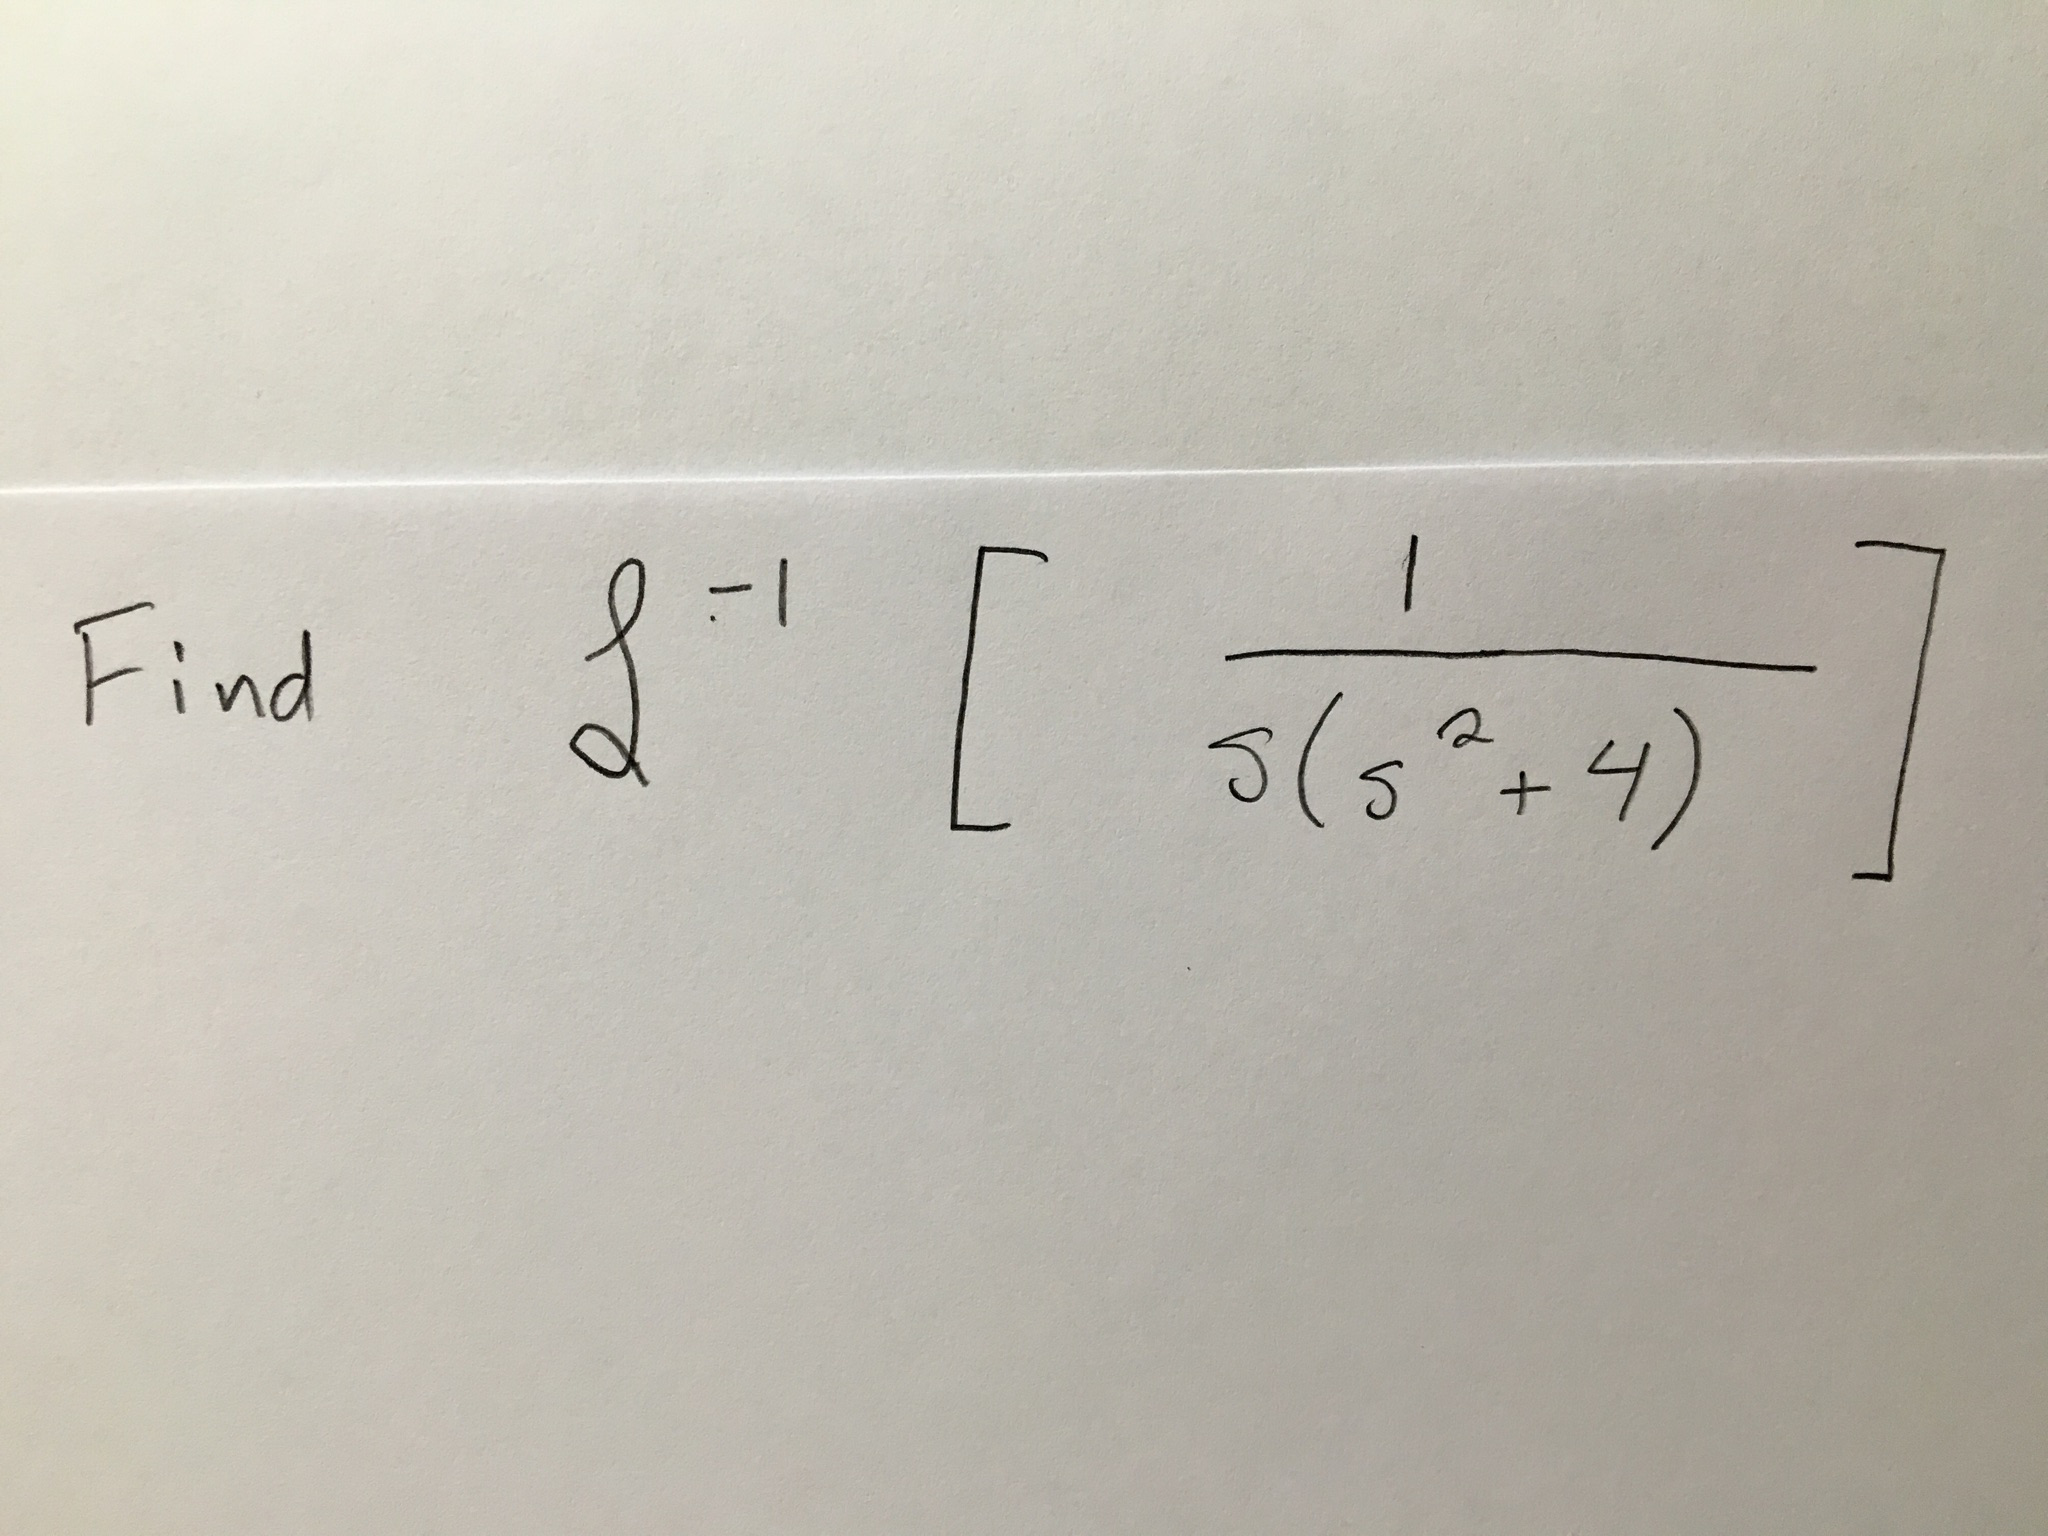 Find ℒ⁻¹ [ 1 / s(s² + 4) ]